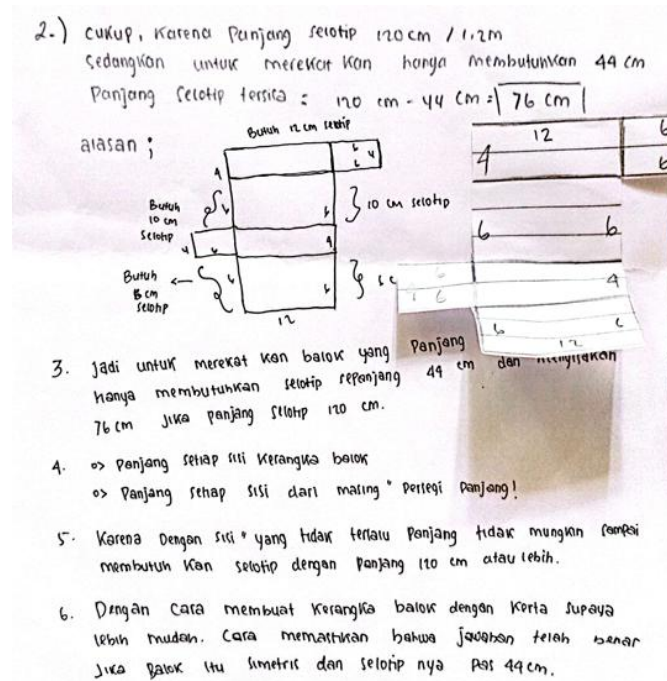 2.) cukup, karena Panjang selotip 120 cm / 1.2m
Sedangkan untuk merekat kan hanya membutuhkan 44 cm
Panjang Selotip tersisa : 120 cm - 44 cm = 76 cm
alasan ;
Butuh 12 cm selotip
4
6 4
6
Butuh
10 cm
Selotip
6 6
10 cm selotip
4 6 4
Butuh
6 6
cm
selotip
12
12 6
4 6
6 6
6
4 6 4
6
12
3. Jadi untuk merekat kan balok yang Panjang
hanya membutuhkan selotip sepanjang 44 cm dan menyisakan
76 cm Jika panjang selotip 120 cm.
4. => Panjang setiap sisi kerangka balok
=> Panjang setiap sisi dari masing " Persegi Panjang!
5. Karena Dengan sisi " yang tidak terlalu Panjang tidak mungkin sampai
membutuh kan selotip dengan Panjang 120 cm atau lebih.
6. Dengan cara membuat kerangka balok dengan kerta supaya
lebih mudah. Cara memastikan bahwa jawaban telah benar
Jika Balok itu simetris dan selotip nya Pas 44 cm.